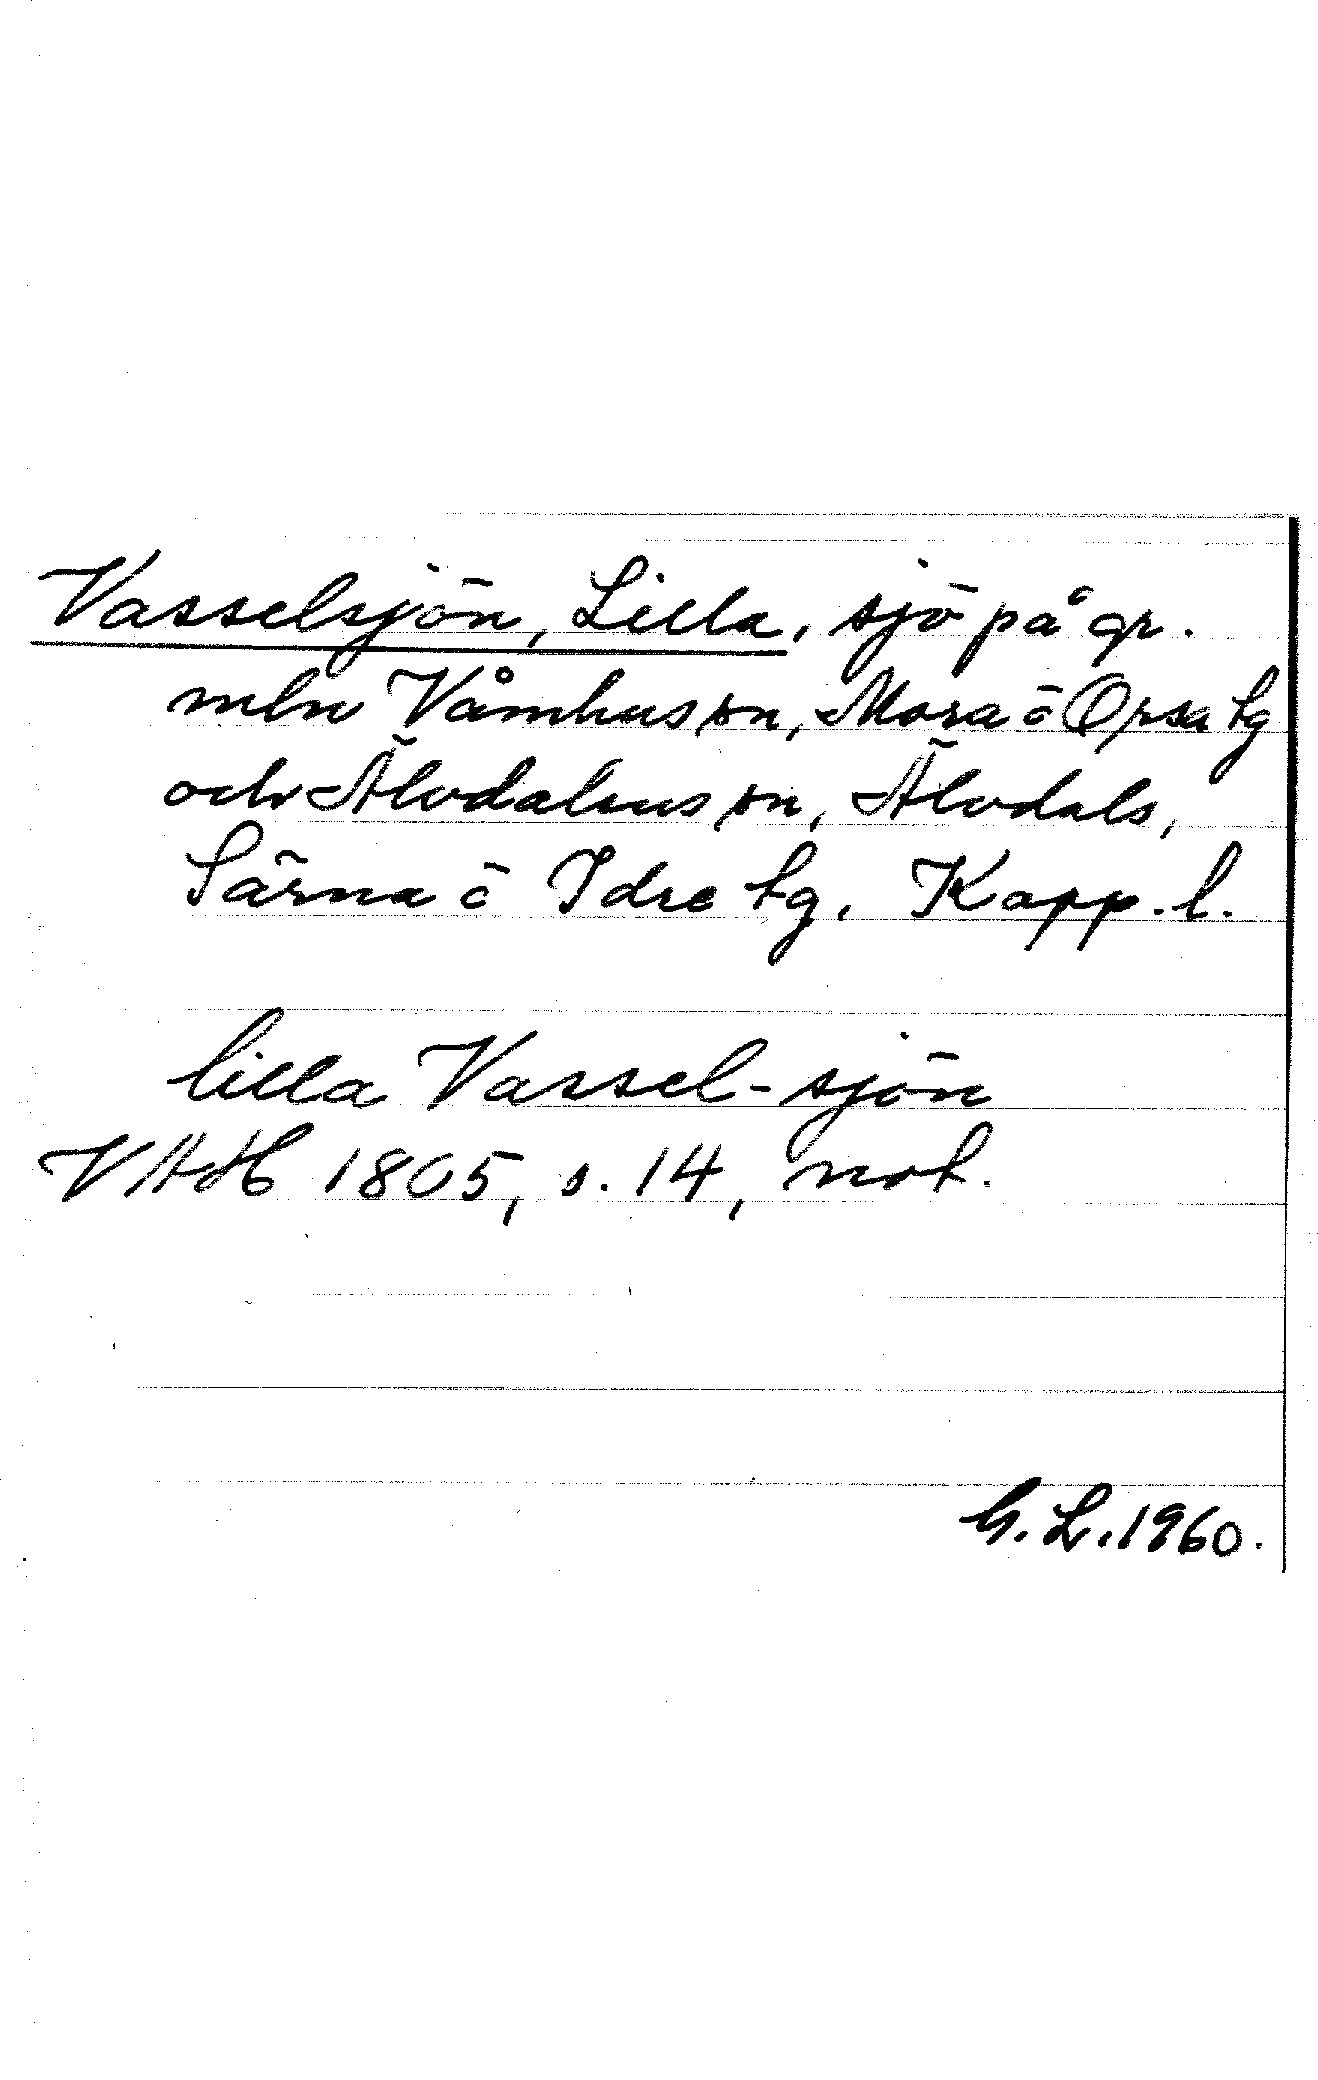 Vasselsjön, Lilla, sjö på gr.
mln Våmhus sn, Mora o Orsa tg
och Älvdalens sn, Älvdals,
Särna o Idre tg, Kopp. l.
lilla Vassel-sjön
VAH 1805, s. 14, not.
G. L. 1960.